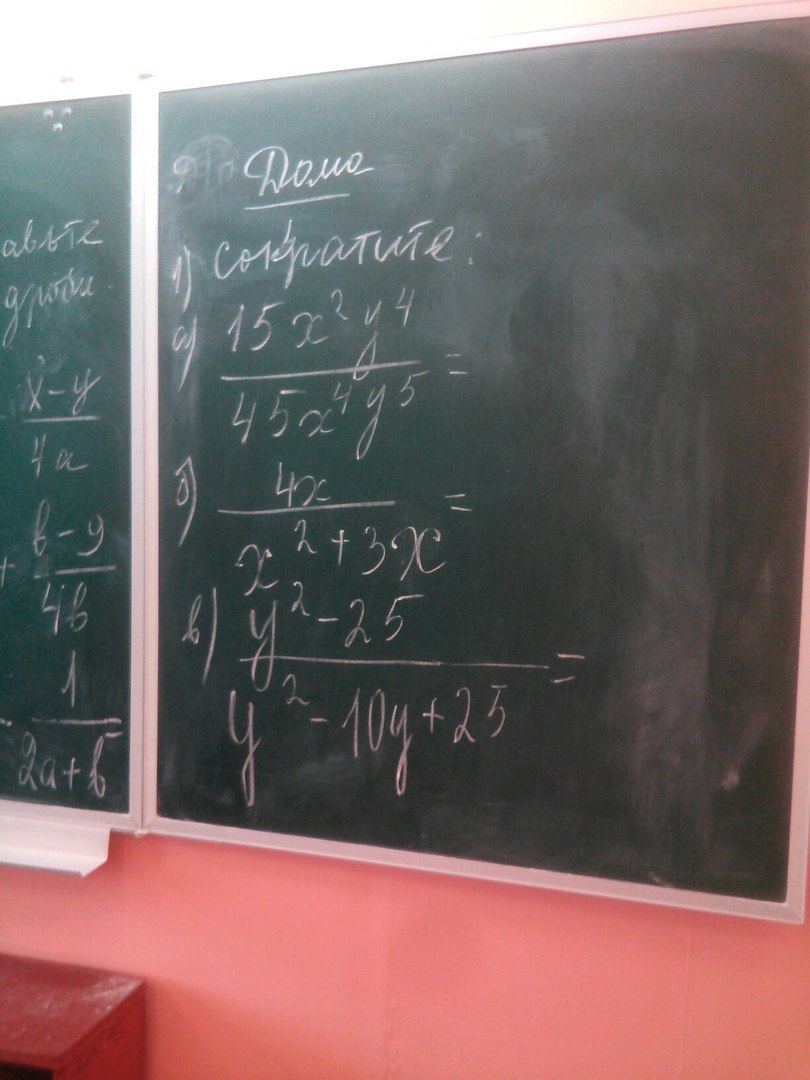 авьте
дроби.
x-y
4a
+ b-9
4b
- 1
2a+b
Дома
1) Сократите:
а) 15x²y⁴
45x⁴y⁵ =
б) 4x
x²+3x =
в) y²-25
y²-10y+25 =